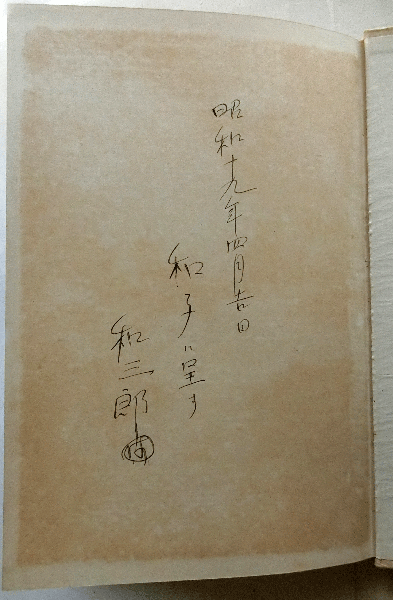 昭和十九年四月吉日
和子に呈す
和三郎